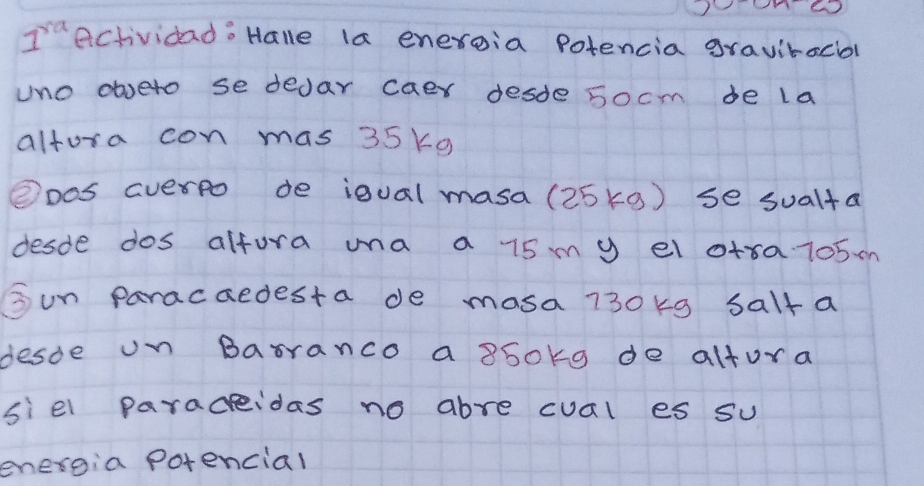 1ra Actividad: Halle la energia Potencia gravitacbl
uno obJeto se deJar caer desde 50cm de la
altura con mas 35kg
② Dos cuerpo de igual masa (25kg) se sualta
desde dos altura una a 15m y el otra 105m
③ un Paracaedesta de masa 130kg salta
desde un Barranco a 850kg de altura
si el Paraceidas no abre cual es su
energia Potencial